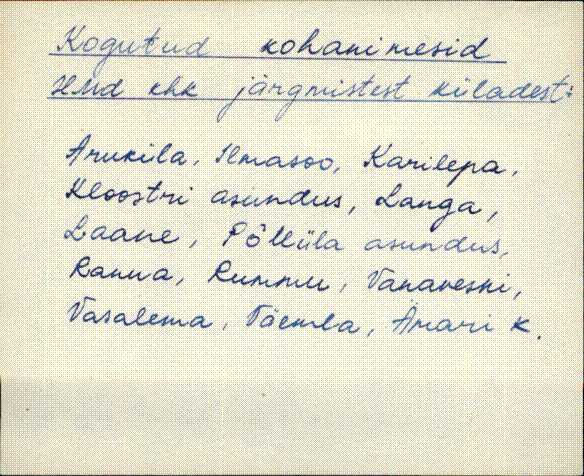 Kogutud kohanimesid
HMd khk järgmistest küladest:
Aruküla, Ilmasoo, Karilepa,
Kloostri asundus, Langa,
Laane, Põllküla asundus,
Ranna, Rummu, Vanaveski,
Vasalema, Väemla, Ämari k.